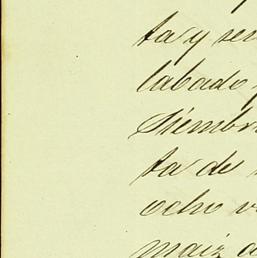 ta y sem
labado
siembr
ta de
ocho v
maiz a